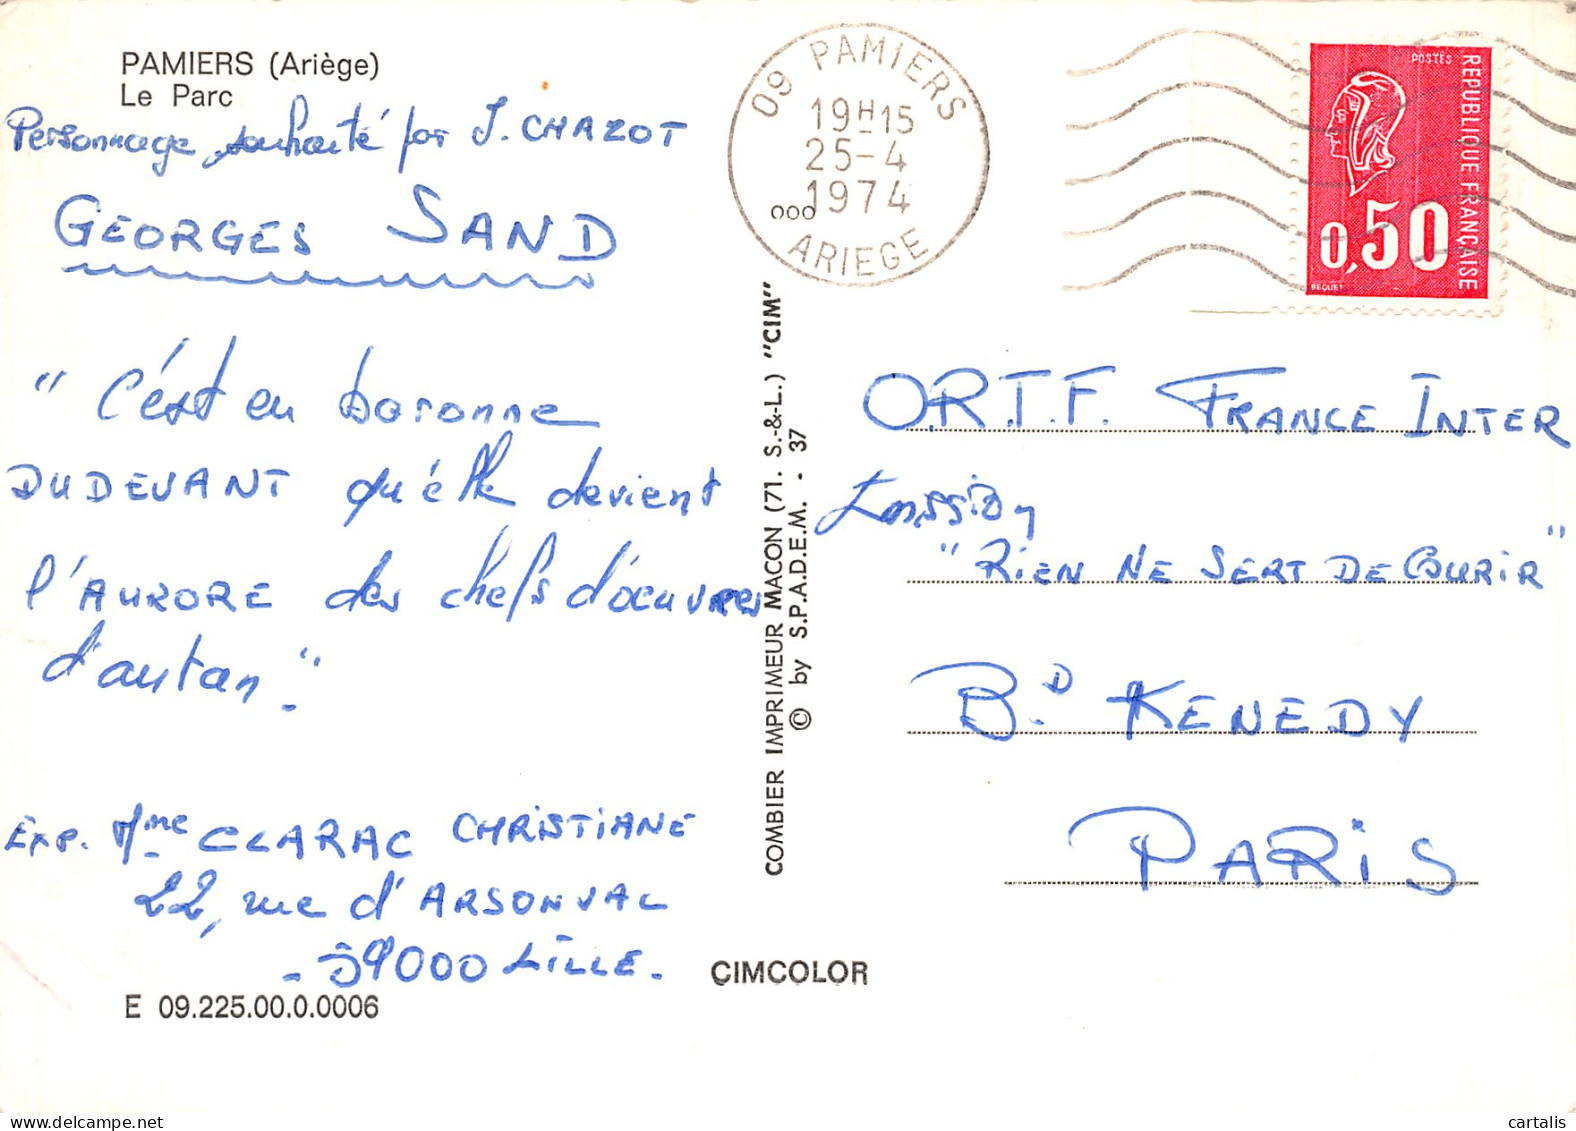 PAMIERS (Ariège)
Le Parc
Personnage souhaité par J. CHAZOT
GEORGES SAND
" C'est en baronne
DUDEVANT qu'elle devient
l'AURORE des chefs d'oeuvres
d'autan."
Exp. Mme CLARAC CHRISTIANE
22, rue d'ARSONVAL
- 59000 LILLE -
E 09.225.00.0.0006
CIMCOLOR
COMBIER IMPRIMEUR MACON (71. S.-&-L.) "CIM"
© by S.P.A.D.E.M. - 37
09 PAMIERS
19H15
25-4
1974
000
ARIEGE
POSTES
REPUBLIQUE FRANÇAISE
0,50
BEQUET
O.R.T.F. FRANCE INTER
Emission
" RIEN NE SERT DE COURIR "
B.D KENEDY
PARIS
delcampe.net
cartalis